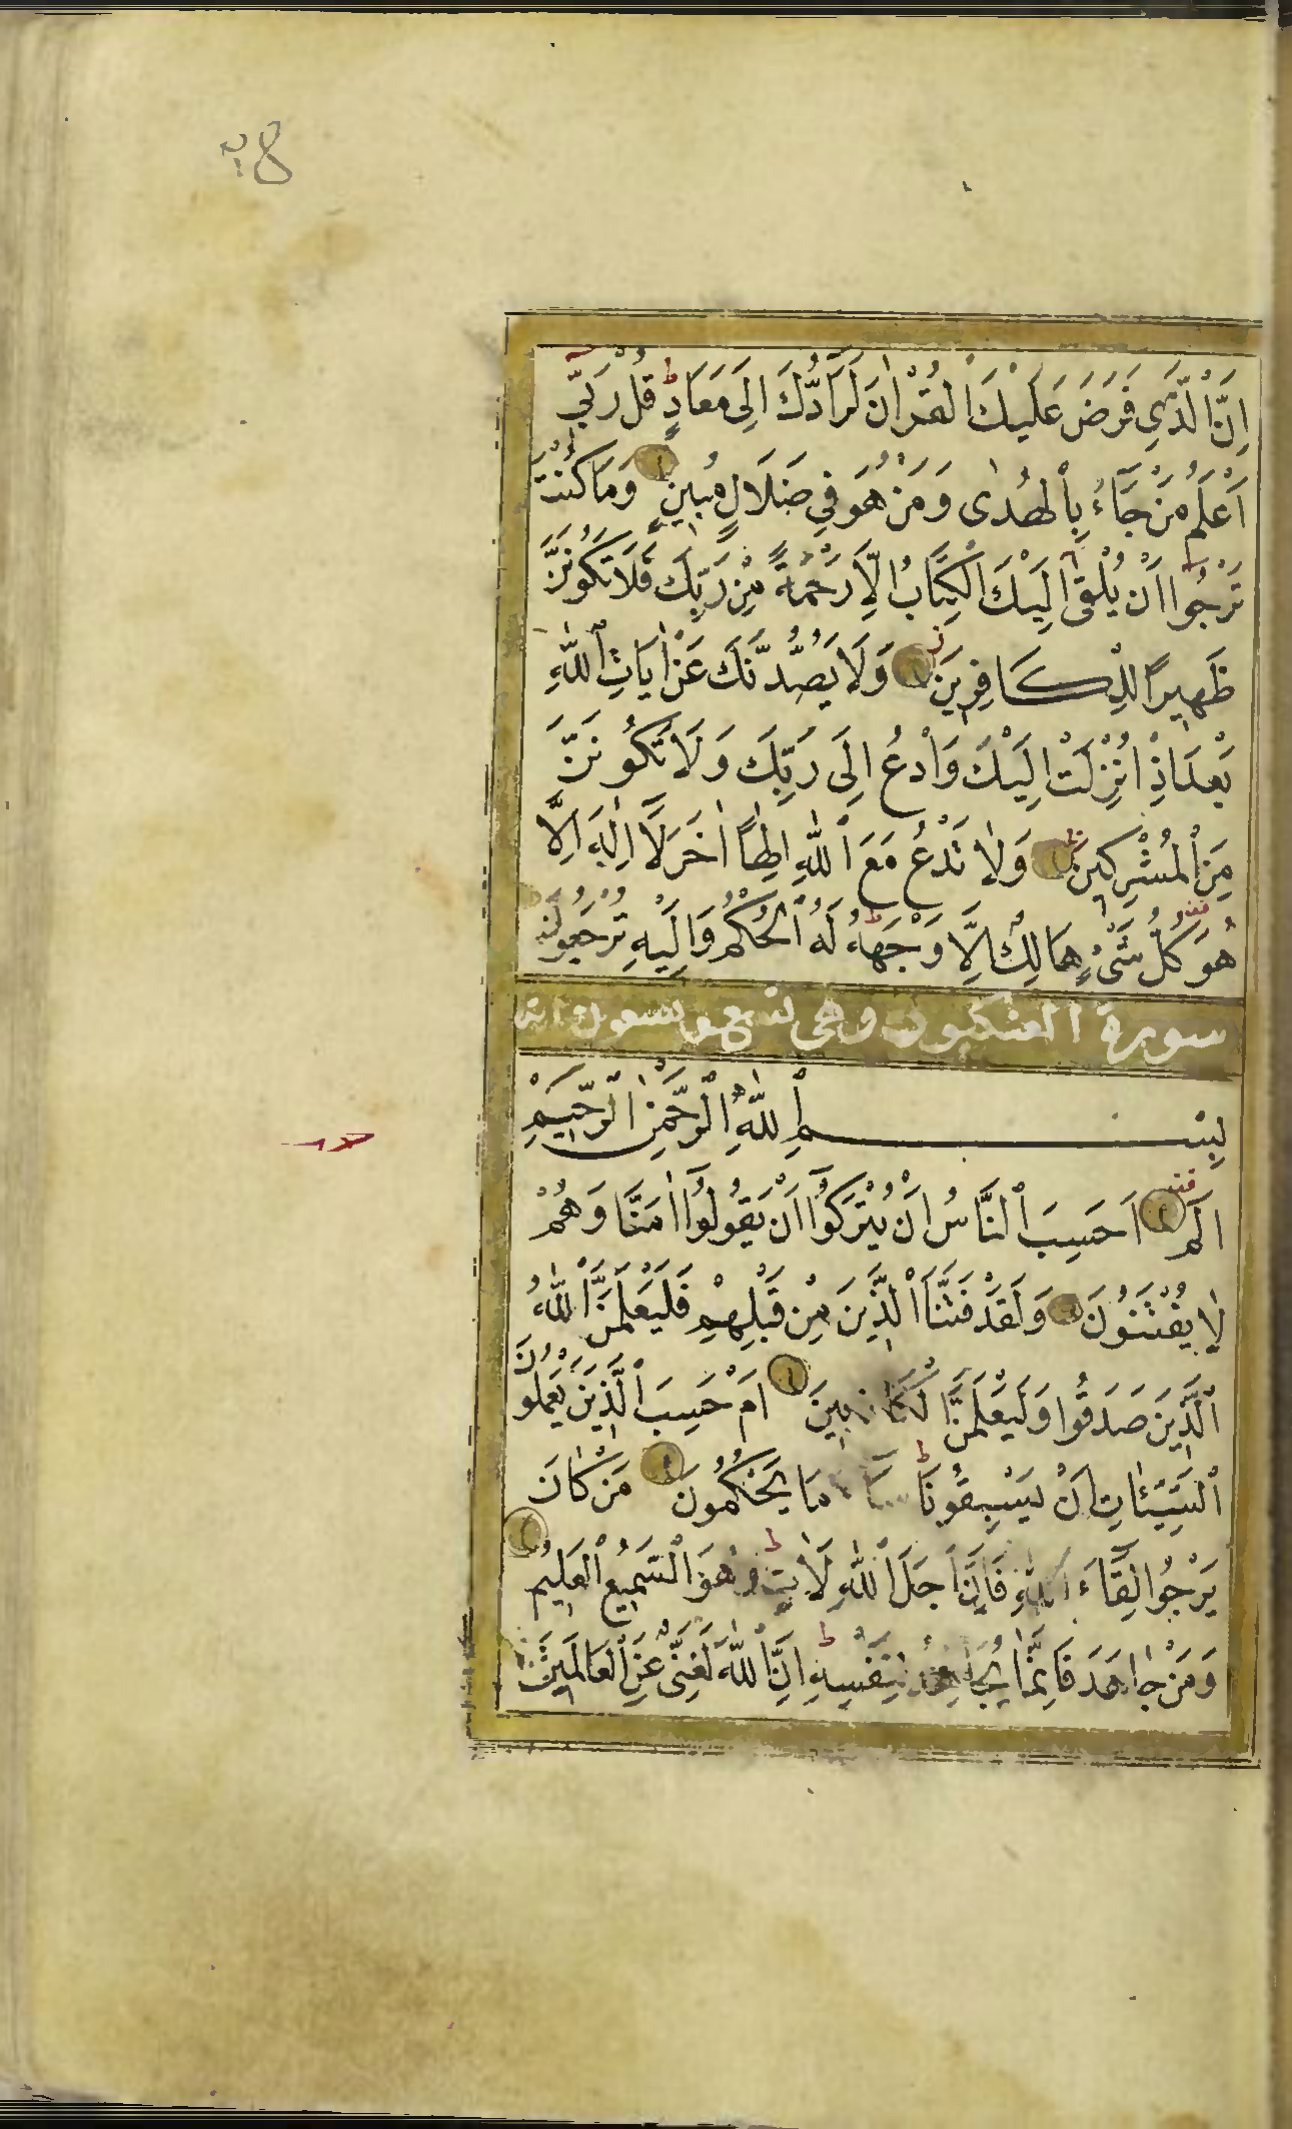 اِنَّ الَّذِي فَرَضَ عَلَيْكَ الْقُرْاٰنَ لَرَآدُّكَ اِلَى مَعَادٍ قُلْ رَبِّي
اَعْلَمُ مَنْ جَآءَ بِالْهُدٰى وَمَنْ هُوَ فِي ضَلَالٍ مُبِينٍ وَمَا كُنْتَ
تَرْجُوا اَنْ يُلْقٰى اِلَيْكَ الْكِتَابُ اِلَّا رَحْمَةً مِنْ رَبِّكَ فَلَا تَكُونَنَّ
ظَهِيرًا لِلْكَافِرِينَ وَلَا يَصُدُّنَّكَ عَنْ اٰيَاتِ اللّٰهِ
بَعْدَ اِذْ اُنْزِلَتْ اِلَيْكَ وَادْعُ اِلَى رَبِّكَ وَلَا تَكُونَنَّ
مِنَ الْمُشْرِكِينَ وَلَا تَدْعُ مَعَ اللّٰهِ اِلٰهًا اٰخَرَ لَآ اِلٰهَ اِلَّا
هُوَ كُلُّ شَيْءٍ هَالِكٌ اِلَّا وَجْهَهُ لَهُ الْحُكْمُ وَاِلَيْهِ تُرْجَعُونَ
سورة العنكبوت وهى تسع وستون اية
بِسْمِ اللّٰهِ الرَّحْمٰنِ الرَّحِيمِ
الٓمٓ اَحَسِبَ النَّاسُ اَنْ يُتْرَكُوٓا اَنْ يَقُولُوٓا اٰمَنَّا وَهُمْ
لَا يُفْتَنُونَ وَلَقَدْ فَتَنَّا الَّذِينَ مِنْ قَبْلِهِمْ فَلَيَعْلَمَنَّ اللّٰهُ
الَّذِينَ صَدَقُوا وَلَيَعْلَمَنَّ الْكَاذِبِينَ اَمْ حَسِبَ الَّذِينَ يَعْمَلُونَ
السَّيِّـَٔاتِ اَنْ يَسْبِقُونَا سَآءَ مَا يَحْكُمُونَ مَنْ كَانَ
يَرْجُوا لِقَآءَ اللّٰهِ فَاِنَّ اَجَلَ اللّٰهِ لَاٰتٍ وَهُوَ السَّمِيعُ الْعَلِيمُ
وَمَنْ جَاهَدَ فَاِنَّمَا يُجَاهِدُ لِنَفْسِهِ اِنَّ اللّٰهَ لَغَنِيٌّ عَنِ الْعَالَمِينَ